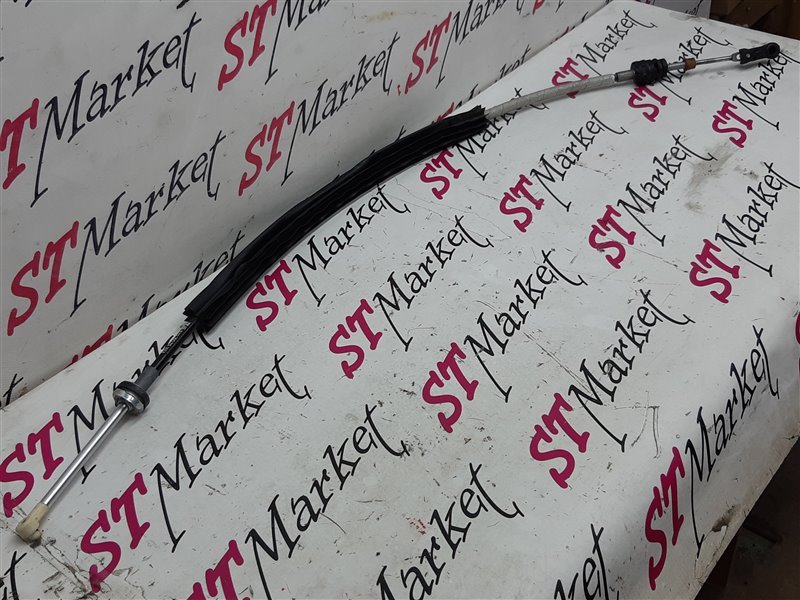 ST Market
ST Market
ST Market
ST Market
ST Market
ST Market
ST Market
ST Market
ST Market
ST Market
ST Market
ST Market
ST Market
ST Market
ST Market
ST Market
ST Market
ST Market
ST Market
ST Market
ST Market